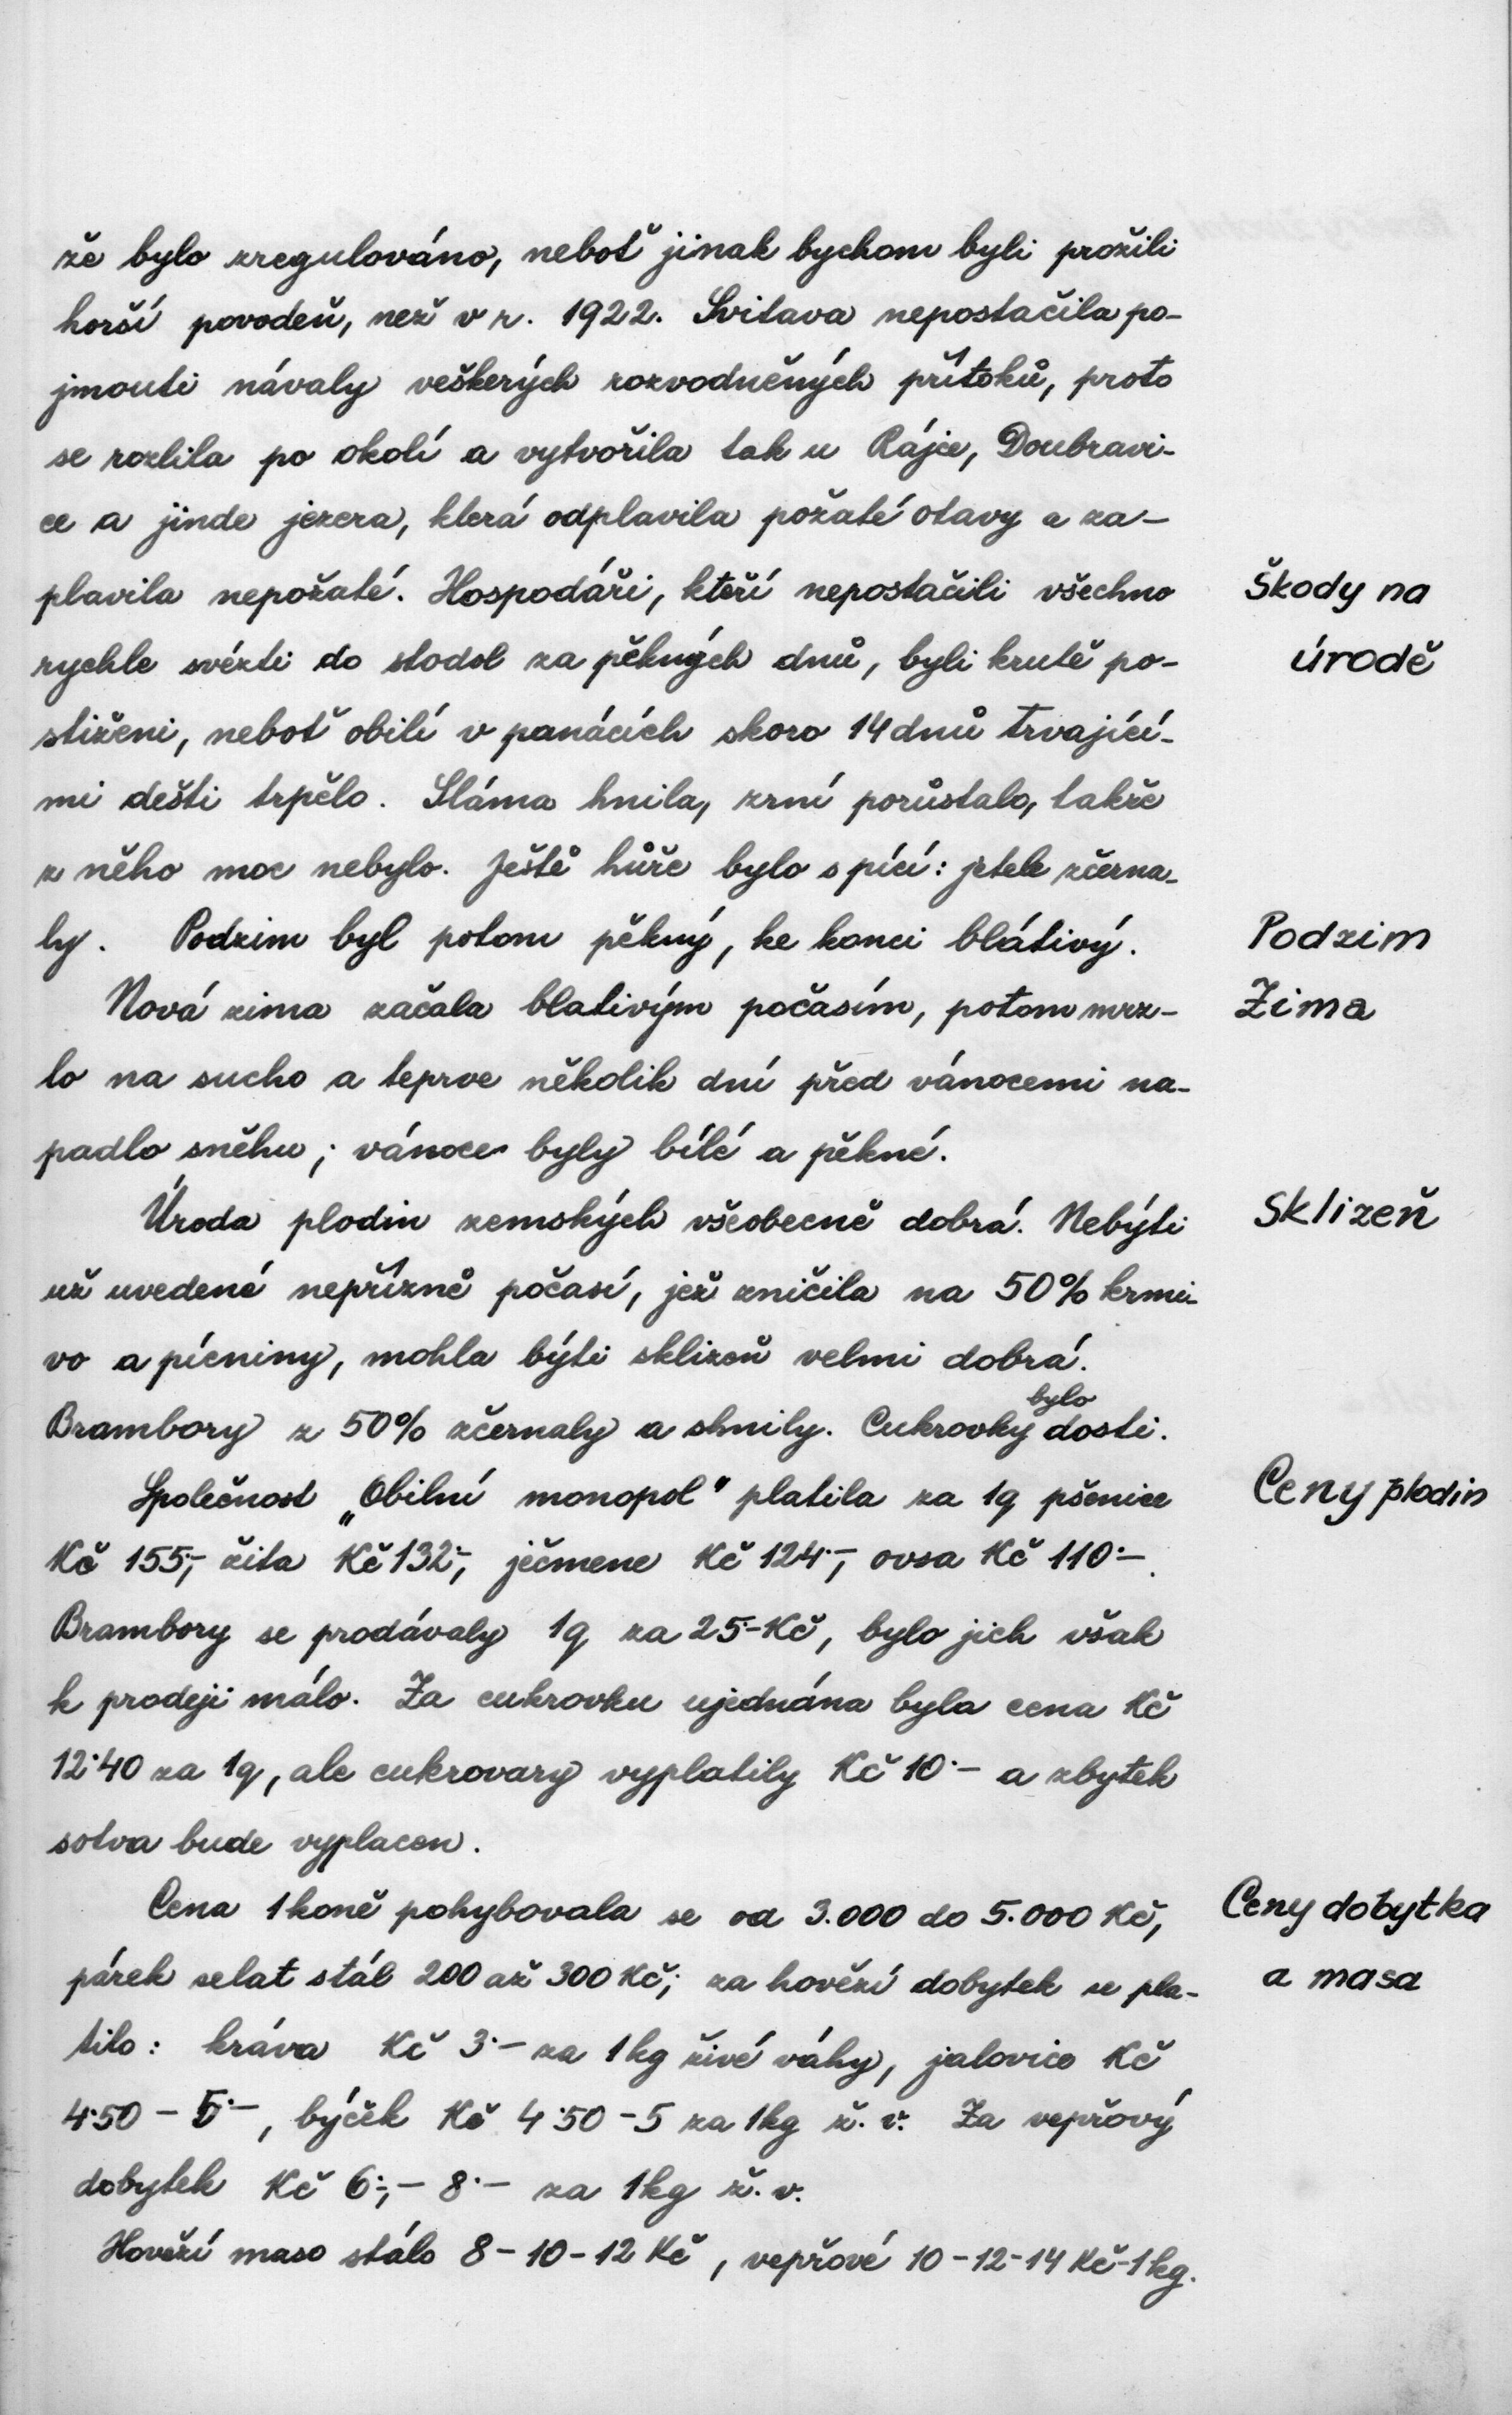 že bylo zregulováno, neboť jinak bychom byli prožili
horší povodeň, než v r. 1922. Svitava nepostačila po-
jmouti návaly veškerých rozvodněných přítoků, proto
se rozlila po okolí a vytvořila tak u Rájce, Doubravi-
ce a jinde jezera, která odplavila požaté otavy a za-
plavila nepožaté. Hospodáři, kteří nepostačili všechno
Škody na
rychle svézti do stodol za pěkných dnů, byli krutě po-
úrodě
stiženi, neboť obilí v panácích skoro 14 dnů trvající-
mi dešti trpělo. Sláma hnila, zrní porůstalo, takže
z něho moc nebylo. Ještě hůře bylo s pící: jetele zčerna-
ly. Podzim byl potom pěkný, ke konci blátivý.
Podzim
Nová zima začala blativým počasím, potom mrz-
Zima
lo na sucho a teprve několik dní před vánocemi na-
padlo sněhu; vánoce byly bílé a pěkné.
Úroda plodin zemských všeobecně dobrá. Nebýti
Sklizeň
už uvedené nepřízně počasí, jež zničila na 50% krmi-
vo a pícniny, mohla býti sklizeň velmi dobrá.
bylo
Brambory z 50% zčernaly a shnily. Cukrovky dosti.
Společnost „Obilní monopol" platila za 1q pšenice
Ceny plodin
Kč 155·-, žita Kč 132·-, ječmene Kč 124·-, ovsa Kč 110·-.
Brambory se prodávaly 1q za 25·- Kč, bylo jich však
k prodeji málo. Za cukrovku ujednána byla cena Kč
12·40 za 1q, ale cukrovary vyplatily Kč 10·- a zbytek
sotva bude vyplacen.
Cena 1 koně pohybovala se od 3.000 do 5.000 Kč,
Ceny dobytka
párek selat stál 200 až 300 Kč; za hovězí dobytek se pla-
a masa
tilo: kráva Kč 3·- za 1 kg živé váhy, jalovice Kč
4·50 - 5·-, býček Kč 4·50 - 5 za 1 kg ž. v. Za vepřový
dobytek Kč 6·-, - 8·- za 1 kg ž. v.
Hovězí maso stálo 8 - 10 - 12 Kč, vepřové 10 - 12 - 14 Kč - 1 kg.